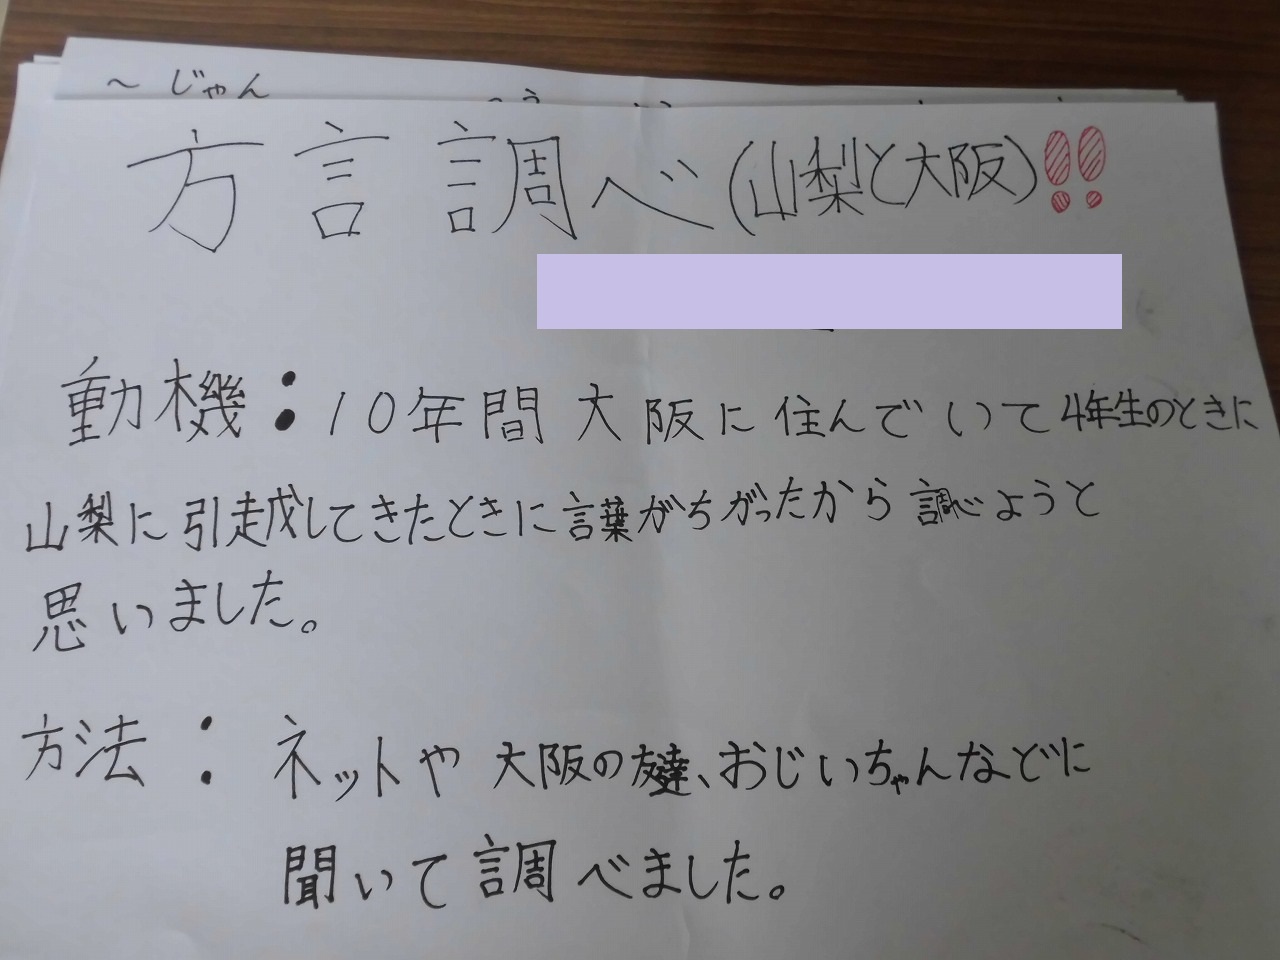 〜じゃん
方言調べ(山梨と大阪)!!
動機:10年間大阪に住んでいて4年生のときに
山梨に引走成してきたときに言葉がちがったから調べようと
思いました。
方法:ネットや大阪の友達、おじいちゃんなどに
聞いて調べました。